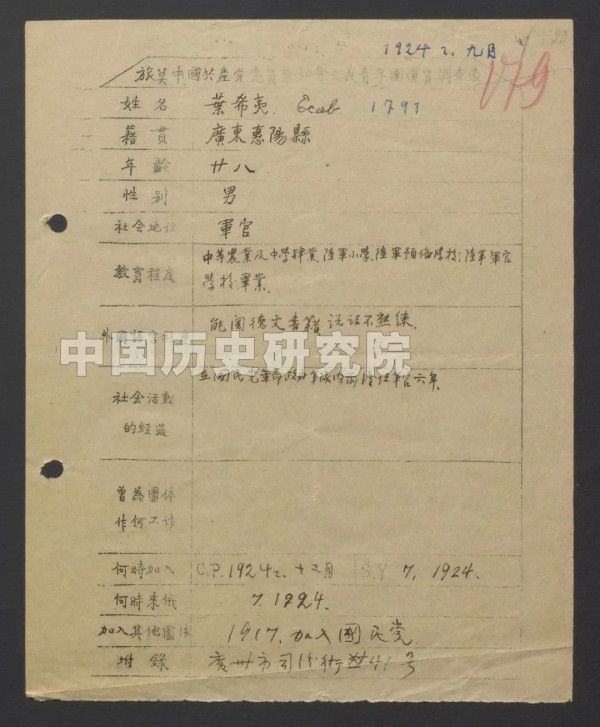 1924 г. 九月
179
旅莫中國共產党党員 社会主義青年團團員調查表
姓名 葉希夷. 1793
籍貫 廣東惠陽縣
年齡 廿八
性別 男
社会地位 軍官
教育程度 中等農業及中學肄業, 陸軍小學, 陸軍預備學校; 陸軍軍官
學校畢業.
外國語言 能閱德文書籍 説話不熟練.
中国历史研究院
社会活動 在國民党革命政府軍隊内 任軍官六年.
的經過
曾為團体
作何工作
何時加入 C.P. 1924 г. 十二月 S.Y. 7, 1924.
何時来俄 7. 1924.
加入其他團体 1917, 加入國民党.
附錄 廣州市司后街 41号